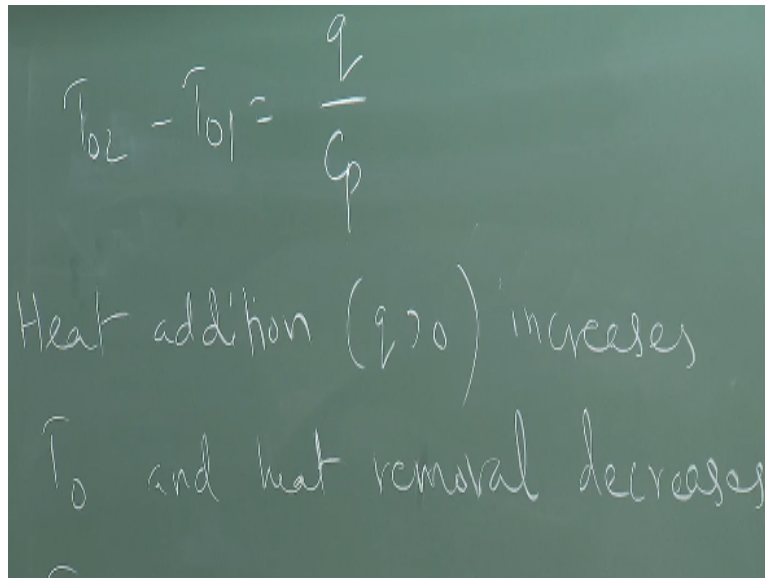 T02 - T01 = q / Cp
Heat addition (q>0) increases
T0 and heat removal decreases